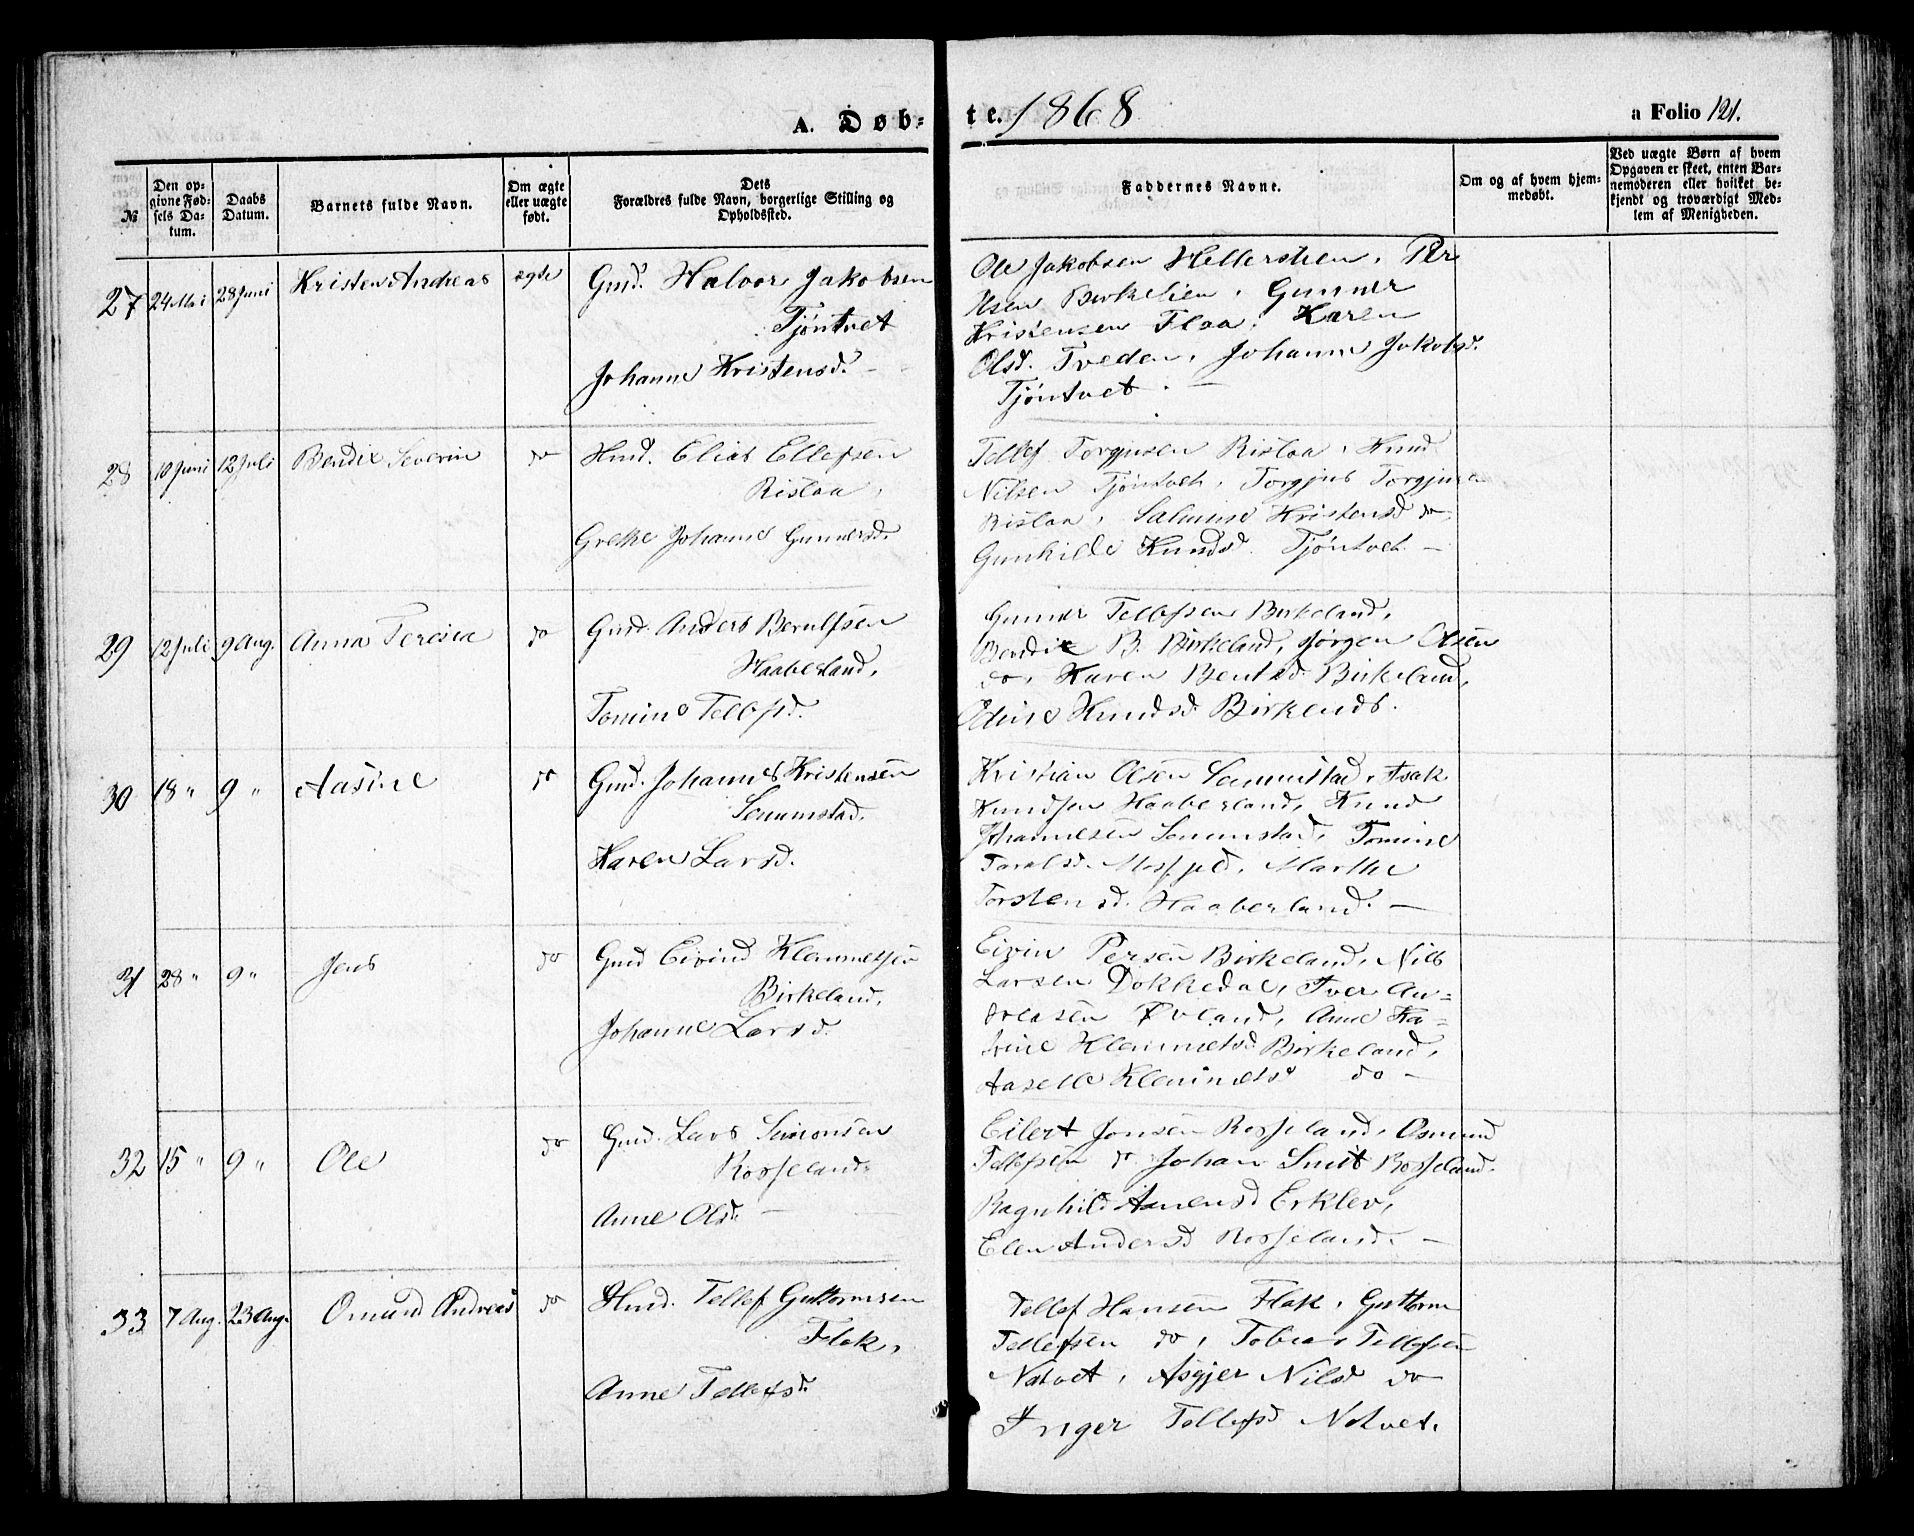 A. Døb=
te. 1868
a Folio 121.
№
Den op-
givne Fød-
sels Da-
tum.
Daabs
Datum.
Barnets fulde Navn.
Om ægte
eller uægte
født.
Dets
Forældres fulde Navn, borgerlige Stilling og
Opholdssted.
Faddernes Navne.
Om og af hvem hjem-
medøbt.
Ved uægte Børn af hvem
Opgaven er skeet, enten Bar-
nemoderen eller hvilket be-
kjendt og troværdigt Med-
lem af Menigheden.
27 24 Mai 28 Juni Kristen Andreas ægte
Gmd. Halvor Jakobsen
Tjøntvet
Johanne Kristensd. –
Ole Jakobsen Hellersheen, Per
Birkelien, Gunner
Kristensen Flaa, Karen
Olsd. Tveden, Johanne Jakobsd.
Tjøntvet. –
28 10 Juni 12 Juli Bendix Severin do
Hmd. Elias Ellefsen
Rislaa,
Grethe Johanne Gunnersd.
Tellef Torgjusen Rislaa, Knud
Nilsen Tjøntvet, Torgjus Torgjusen
Rislaa, Salmine Kristensd do,
Gunhilde Knudsd. Tjøntvet –
29 12 Juli 9 Aug. Anna Teresea do
Gmd. Anders Berulfsen
Haaberland,
Tomine Tellefsd.
Gunner Tellefsen Birkeland,
Bendix B. Birkeland, Jørgen Olsen
do, Karen Bentsd Birkeland,
Knudsd Birkelands.
30 18 " 9 " Aasine do
Gmd. Johannes Kristensen
Senumstad,
Karen Larsd.
Kristian Olsen Senumstad, Isak
Knudsen Haaberland, Knud
Johannesen Senumstad, Tomine
Taralsd. Mosfjeld, Marthe
Torstensd. Haaberland. –
31 28 " 9 " Jens do
Gmd Eivind Klemmetsen
Birkeland,
Johanne Larsd.
Eivin Persen Birkeland, Nils
Larsen Dokkedal, Iver An=
dreasen Øvland, Anne Ka=
trine Klemmetsd Birkeland,
Aaselle Klemmetsd do –
32 15 " 9 " Ole do
Gmd. Lars Simonsen
Rosseland,
Anne Olsd. –
Eilert Jonsen Rosseland, Osmund
Tellefsen do Johan Rosseland.
Ragnhild Aanensd Erklev,
Elen Andersd Rosseland. –
33 7 Aug. 23 Aug. Omund Andreas do
Hmd. Tellef Guttormsen
Flak,
Anne Tellefsd.
Tellef Hansen Flak, Guttorm
Tellefsen do, Tobias Tellefsen
Natvet, Asgjer Nilsd do
Inger Tellefsd Natvet.